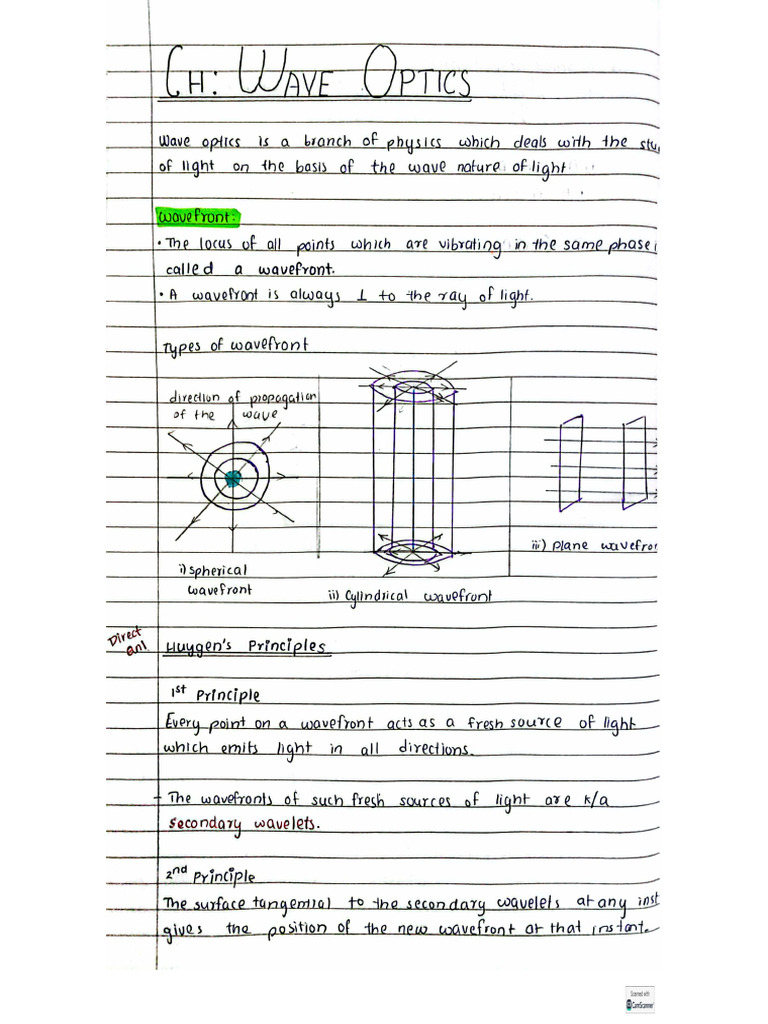 CH: WAVE OPTICS
Wave optics is a branch of physics which deals with the
of light on the basis of the wave nature of light
Wavefront:
• The locus of all points which are vibrating in the same phase
called a wavefront.
• A wavefront is always ⊥ to the ray of light.
Types of wavefront
direction of propagation
of the wave
i) Spherical
wavefront
ii) Cylindrical wavefront
iii) Plane
Direct
Huygen's Principles
1st Principle
Every point on a wavefront acts as a fresh source of light
which emits light in all directions.
- The wavefronts of such fresh sources of light are k/a
secondary wavelets.
2nd Principle
The surface tangential to the secondary wavelets at any
gives the position of the new wavefront at that instant.
Scanned with
CamScanner